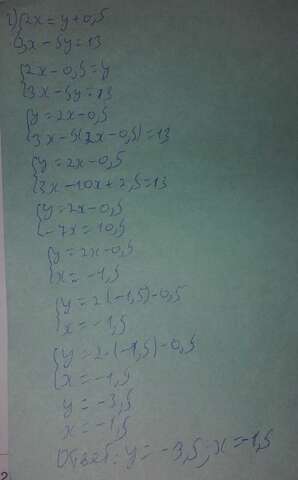 г) {2x = y + 0,5
3x - 5y = 13
{2x - 0,5 = y
3x - 5y = 13
{y = 2x - 0,5
3x - 5(2x - 0,5) = 13
{y = 2x - 0,5
3x - 10x + 2,5 = 13
{y = 2x - 0,5
-7x = 10,5
{y = 2x - 0,5
x = -1,5
{y = 2(-1,5) - 0,5
x = -1,5
{y = 2·(-1,5) - 0,5
x = -1,5
y = -3,5
x = -1,5
Ответ: y = -3,5; x = -1,5